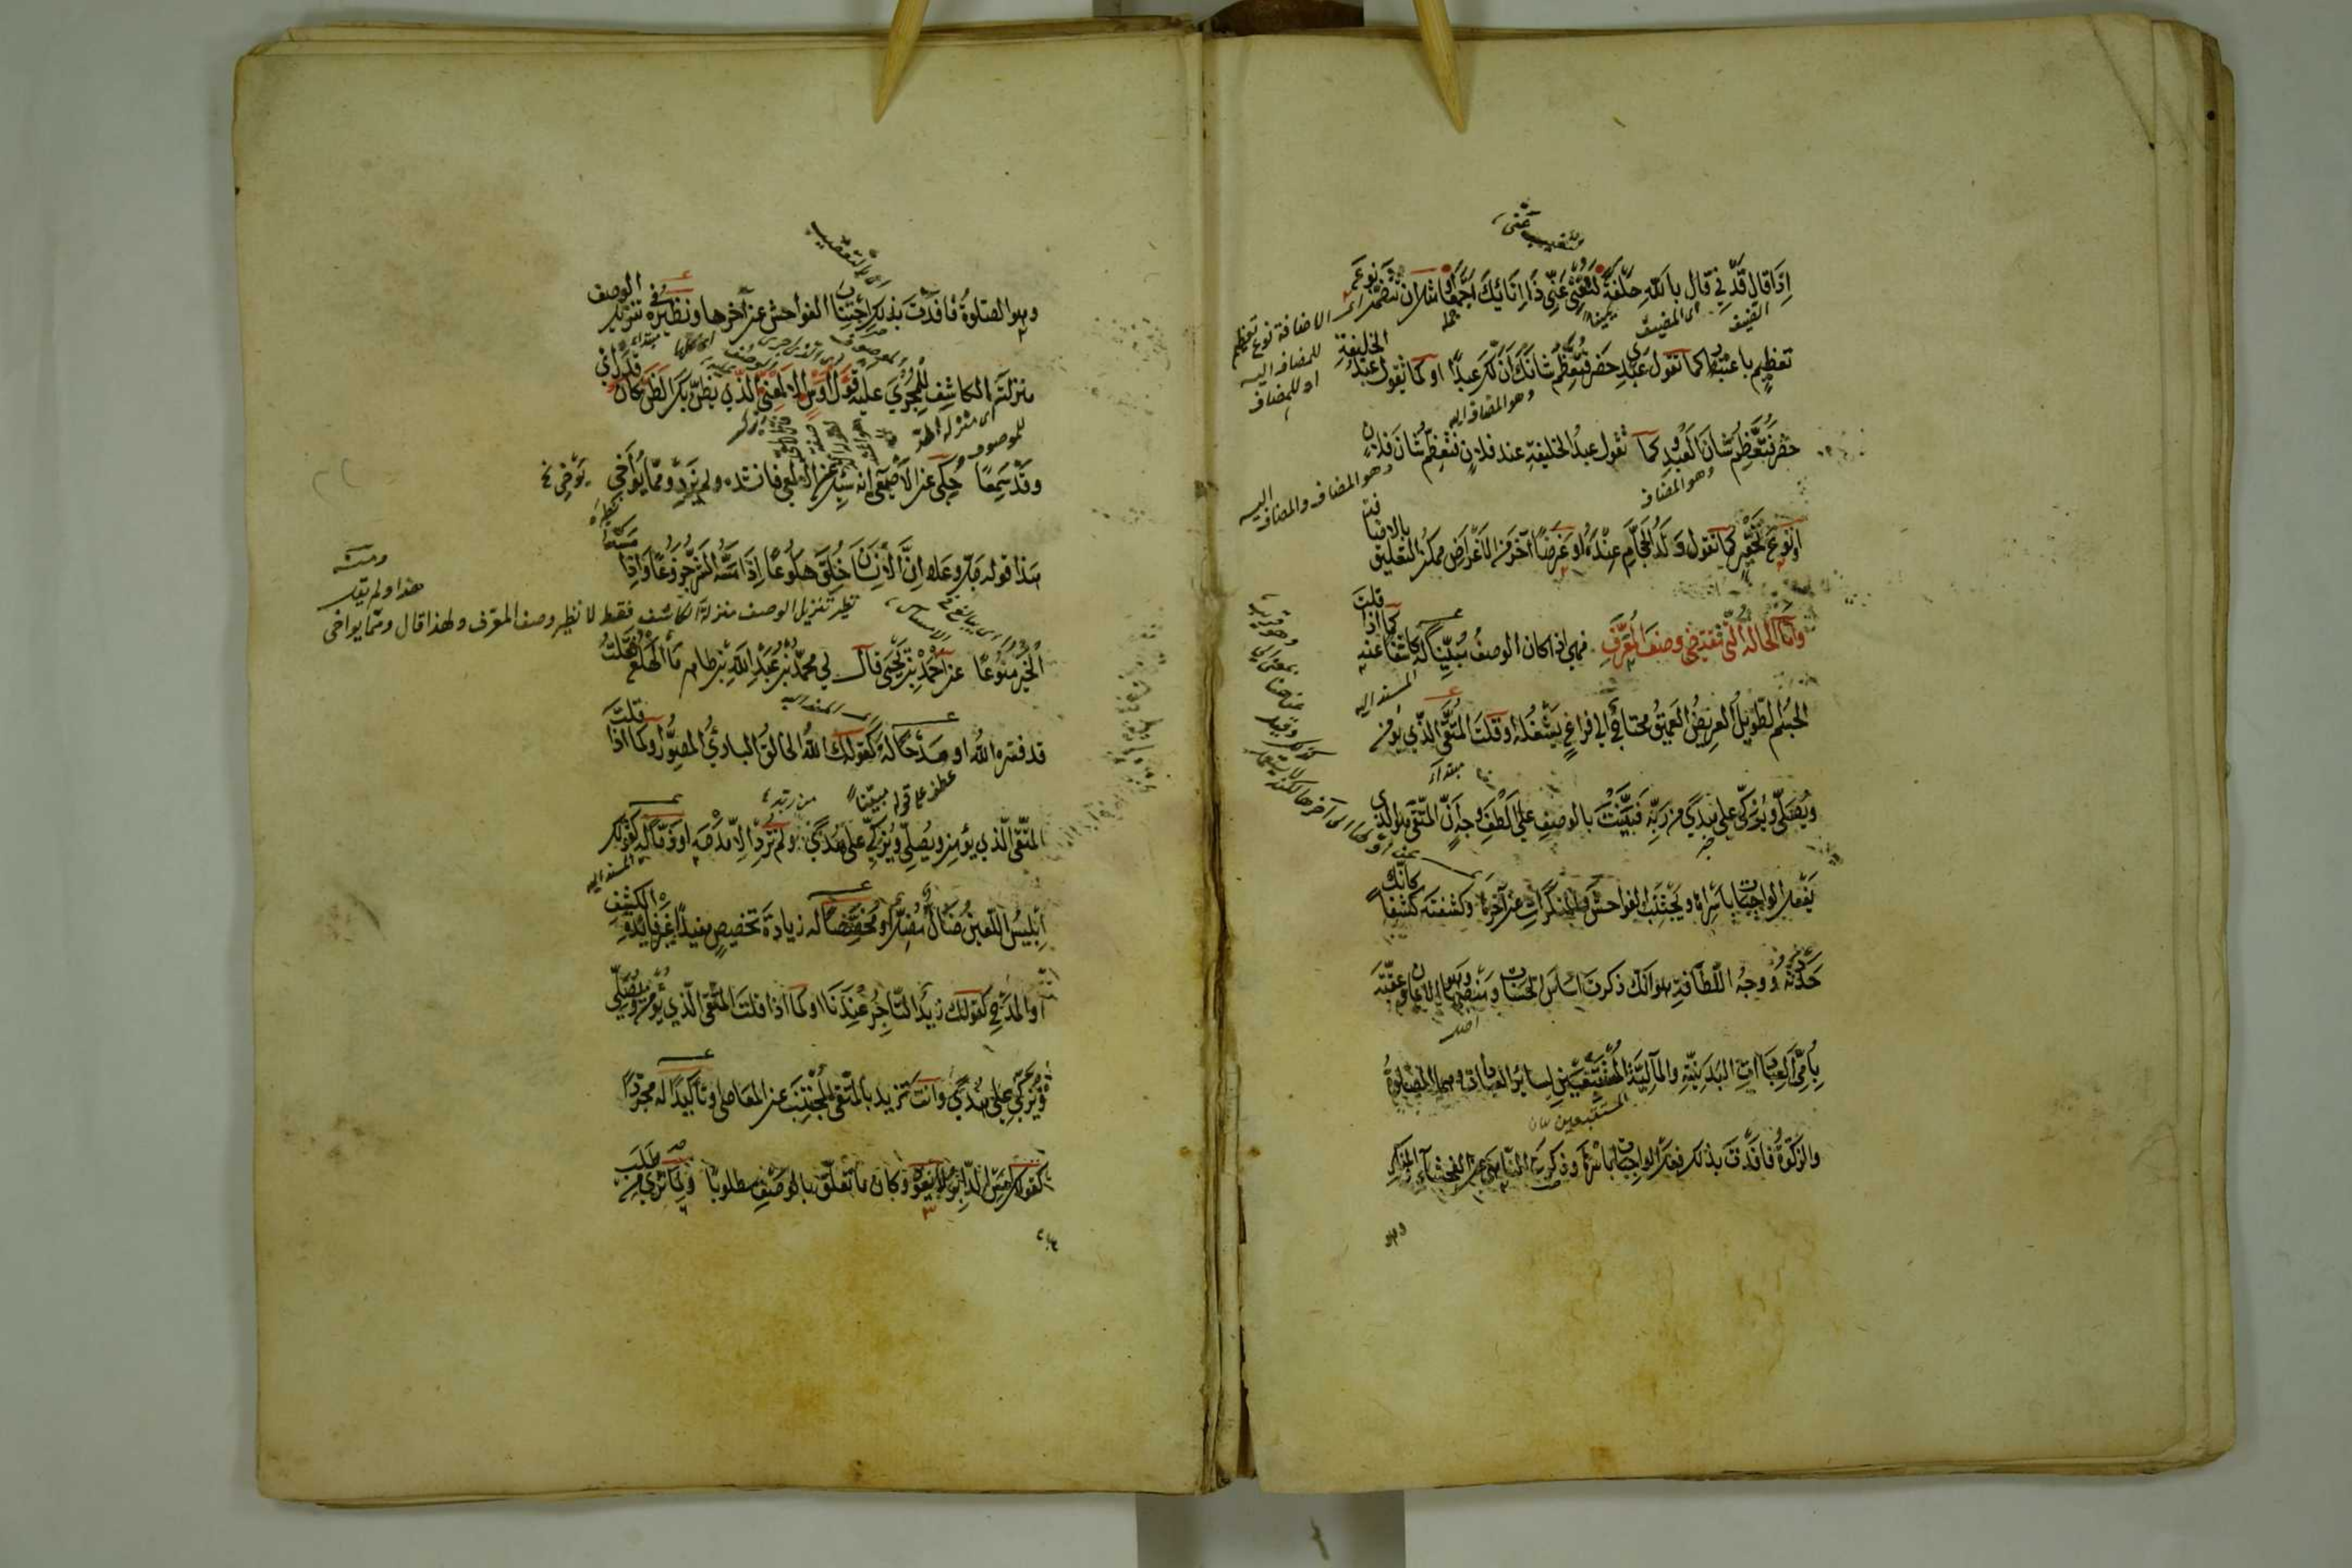 إذا قال قدني قال بالله حلفة لتغني عني ذا إنائك أجمعا أو مثل أن تتضمن نوع
تعظيم باعتبار كما تقول عبدي حضر فتعظم شأنك أن لك عبدا أو كما تقول عبد الخليفة
حضر فتعظم شأن العبد كما تقول عبد الخليفة عند فلان فتعظم شأن فلان
أو نوع تحقير كما تقول ولد الحجام عنده أو غرضا آخر من الأغراض ممكن التعليق بالإضافة
وأما الحالة التي تقتضي وصف المعرف فهي إذا كان الوصف مبينا له كاشفا عنه كما إذا قلت
الجسم الطويل العريض العميق محتاج إلى فراغ يشغله أو قلت المتقي الذي يؤمن
ويصلي ويزكي على هدى من ربه فبينت بالوصف على ألطف وجه أن المتقي هو الذي
يفعل الواجبات بأسرها ويجتنب الفواحش والمنكرات عن آخرها وكشفته كشفا كأنك
حددته ووجه اللطافة هو أنك ذكرت أساس الحسنات ومنصبها وهو الإيمان وعقبته
بأمي العبادات البدنية والمالية المستتبعتين لسائر العبادات وهما الصلوة
والزكوة فأفدت بذلك فعل الواجبات بأسرها وذكرت الناهي عن الفحشاء والمنكر
وهو
وهو الصلوة فأفدت بذلك اجتناب الفواحش عن آخرها ونظيره في تنزيل الوصف
منزلة الكاشف للمجرى عليه قول أوس الألمعي الذي يظن بك الظن كأن قد رأى
وقد سمعا حكي عن الأصمعي أنه سئل عن الألمعي فأنشده ولم يزد ومما يؤاخي
هذا قوله جل وعلا إن الإنسان خلق هلوعا إذا مسه الشر جزوعا وإذا مسه
الخير منوعا عن أحمد بن يحيى قال لي محمد بن عبد الله بن طاهر ما الهلع فقلت
قد فسره الله أو مدحا له كقولك الله الخالق البارئ المصور وكما إذا قلت
المتقي الذي يؤمن ويصلي ويزكي على هدى ولم ترد إلا مدحه أو ذما له كقولك
إبليس اللعين ضال مضل أو مخصصا له زيادة تخصيص مفيدا غير فائدة الكشف
أو المدح كقولك زيد التاجر عندنا أو كما إذا قلت المتقي الذي يؤمن ويصلي
ويزكي على هدى وأنت تريد بالمتقي المجتنب عن المعاصي أو تأكيدا له مجردا
كقولك أمس الدابر لا يعود وكان ما تعلق بالوصف مطلوبا ولما ترى من طلب
الإضافة نوع تعظيم
للمضاف إليه
أو للمضاف
وهو المضاف إليه
وهو المضاف
وهو المضاف والمضاف إليه
المسند إليه
ومنه
هذا ولم يقل
نظير تنزيل الوصف منزلة الكاشف فقط لا نظير وصف المعرف ولهذا قال ومما يؤاخي
أي المسند إليه
عطف على قوله مبينا
من ربه
المسند إليه